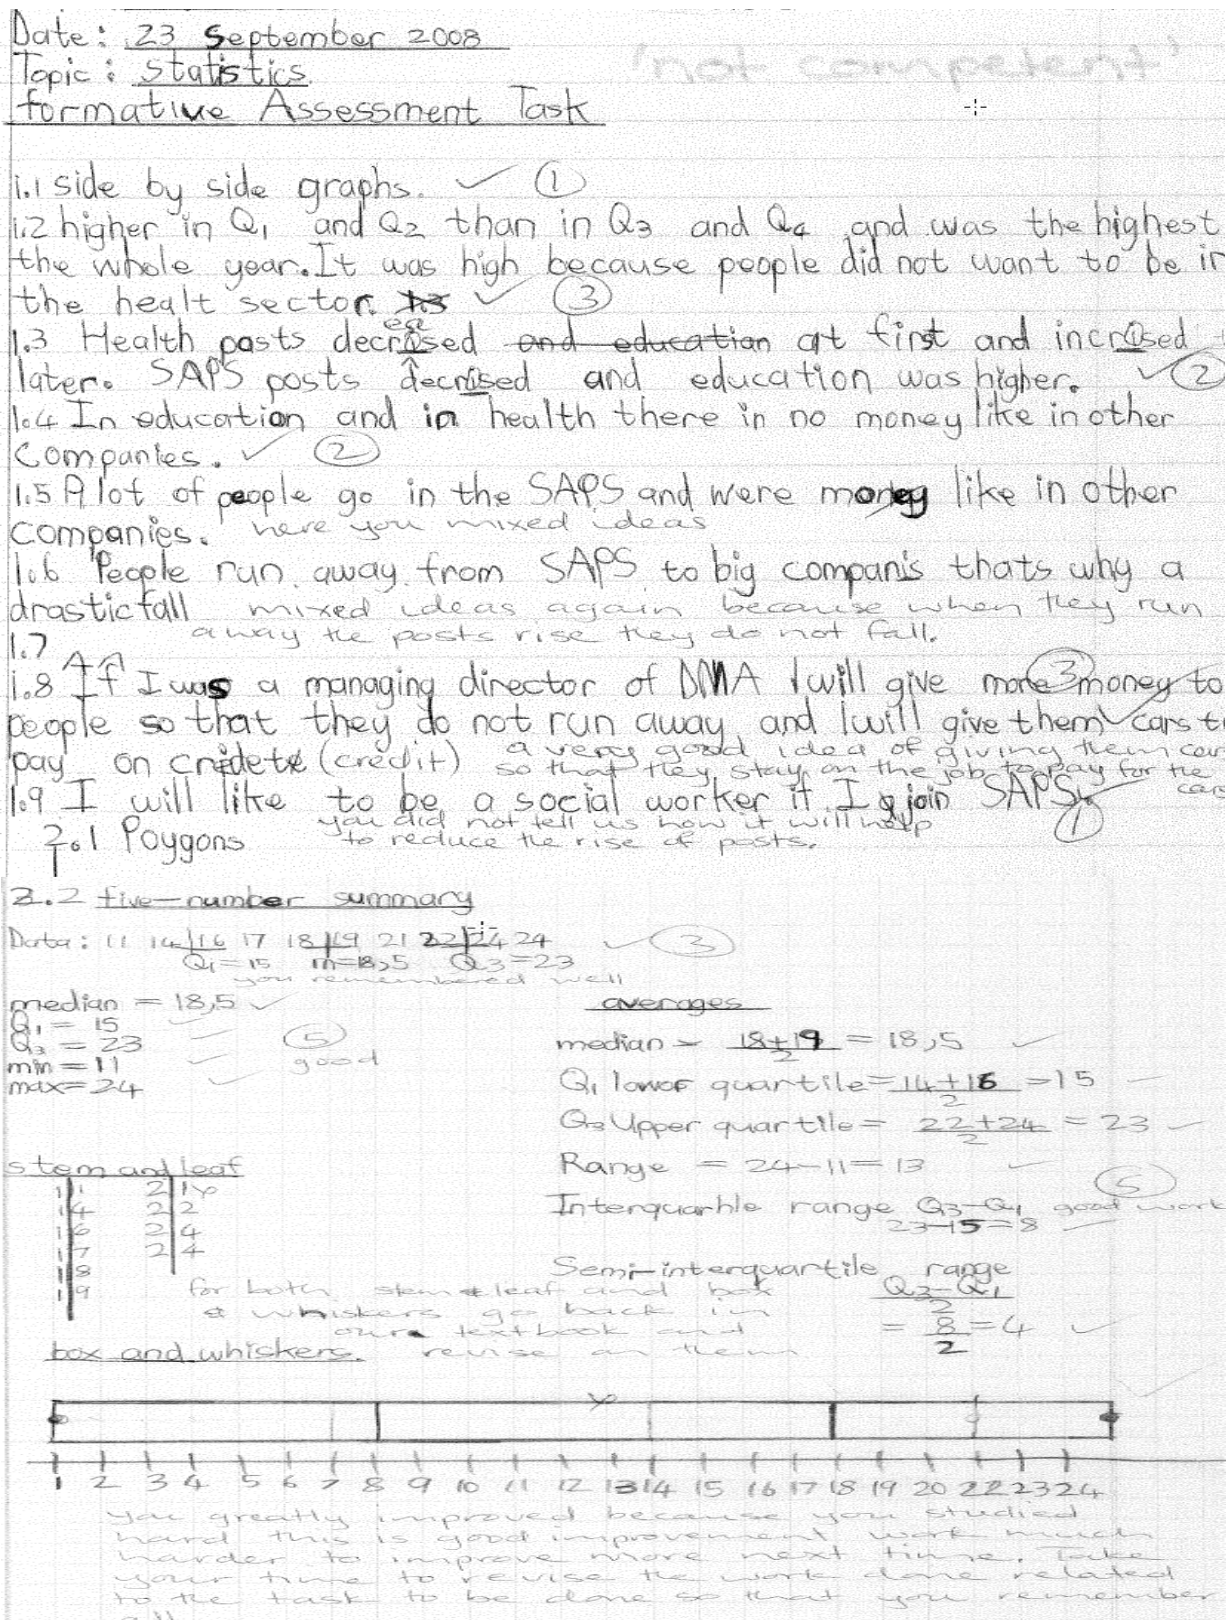 Date: 23 September 2008
'not competent'
Topic: statistics
formative Assessment Task
1.1 side by side graphs. ✓ 1
1.2 higher in Q1 and Q2 than in Q3 and Q4 and was the highest
the whole year. It was high because people did not want to be in
the healt sector. 1.3 ✓ 3
1.3 Health posts decrised and education at first and incrised
ea
later. SAPS posts decrised and education was higher. ✓ 2
1.4 In education and in health there in no money like in other
Companies. ✓ 2
1.5 A lot of people go in the SAPS and were money like in other
companies. here you mixed ideas
1.6 People run away from SAPS to big companis thats why a
drastic fall mixed ideas again because when they run
away the posts rise they do not fall.
1.7
1.8 If I was a managing director of DMA I will give more money to 3
people so that they do not run away and I will give them cars
pay on credete (credit) a very good idea of giving them
so that they stay on the job to pay for the
cars
1.9 I will like to be a social worker if I join SAPS. 1
you did not tell us how it will help
2.1 Poygons to reduce the rise of posts.
2.2 five-number summary
Data: 11 14|16 17 18|19 21 22|24 24 ✓ 3
Q1=15 m=18,5 Q3=23
you remembered well
median = 18,5 ✓
Q1 = 15
Q3 = 23 5
min = 11 good
max = 24
averages
median = 18+19/2 = 18,5 ✓
Q1 lower quartile = 14+16/2 = 15
Q3 Upper quartile = 22+24/2 = 23
Range = 24-11=13
5
Interquartile range Q3-Q1 good work
23-15=8
Semi-interquartile range
Q3-Q1
2
= 8/2 = 4 ✓
stem and leaf
1|1 2|1
1|4 2|2
1|6 2|4
1|7 2|4
1|8
1|9
for both stem & leaf and box
& whiskers go back in
textbook and
revise on them
box and whiskers.
1 2 3 4 5 6 7 8 9 10 11 12 13 14 15 16 17 18 19 20 22 22 23 24
you greatly improved because you studied
hard this is good improvement work much
harder to improve more next time. Take
your time to revise the work done related
to the task to be done so that you remember